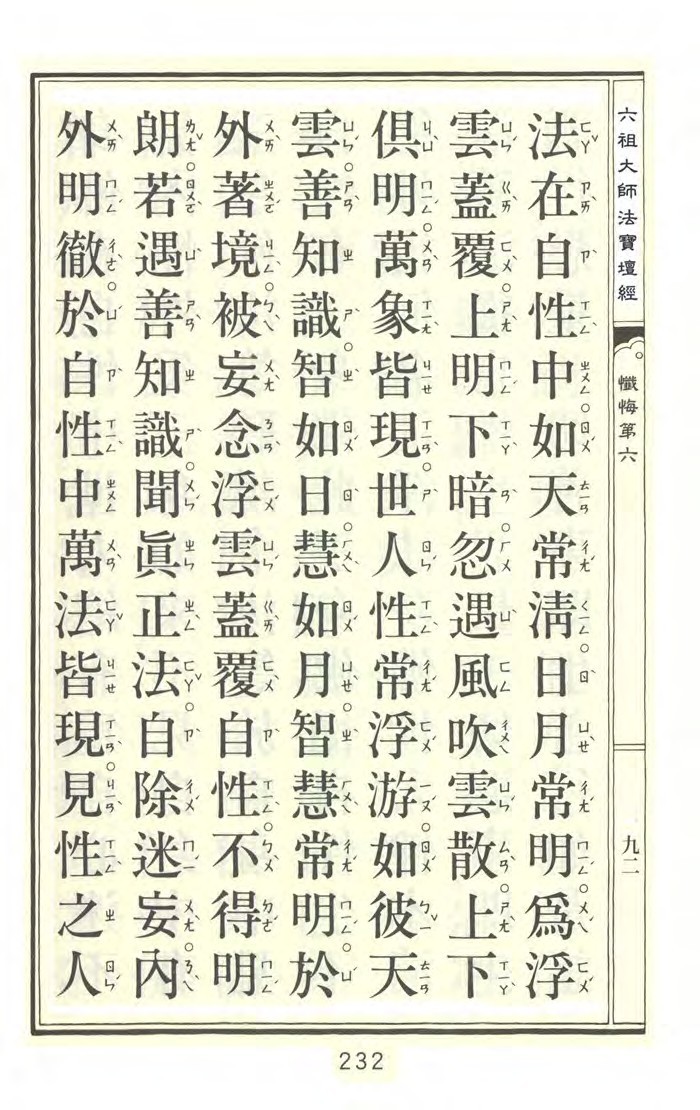 六祖大師法寶壇經
懺悔第六
九二
法在自性中。如天常清。日月常明。為浮
雲蓋覆。上明下暗。忽遇風吹雲散。上下
俱明。萬象皆現。世人性常浮游。如彼天
雲。善知識。智如日。慧如月。智慧常明。於
外著境。被妄念浮雲蓋覆自性。不得明
朗。若遇善知識。聞眞正法。自除迷妄。內
外明徹。於自性中萬法皆現。見性之人
232